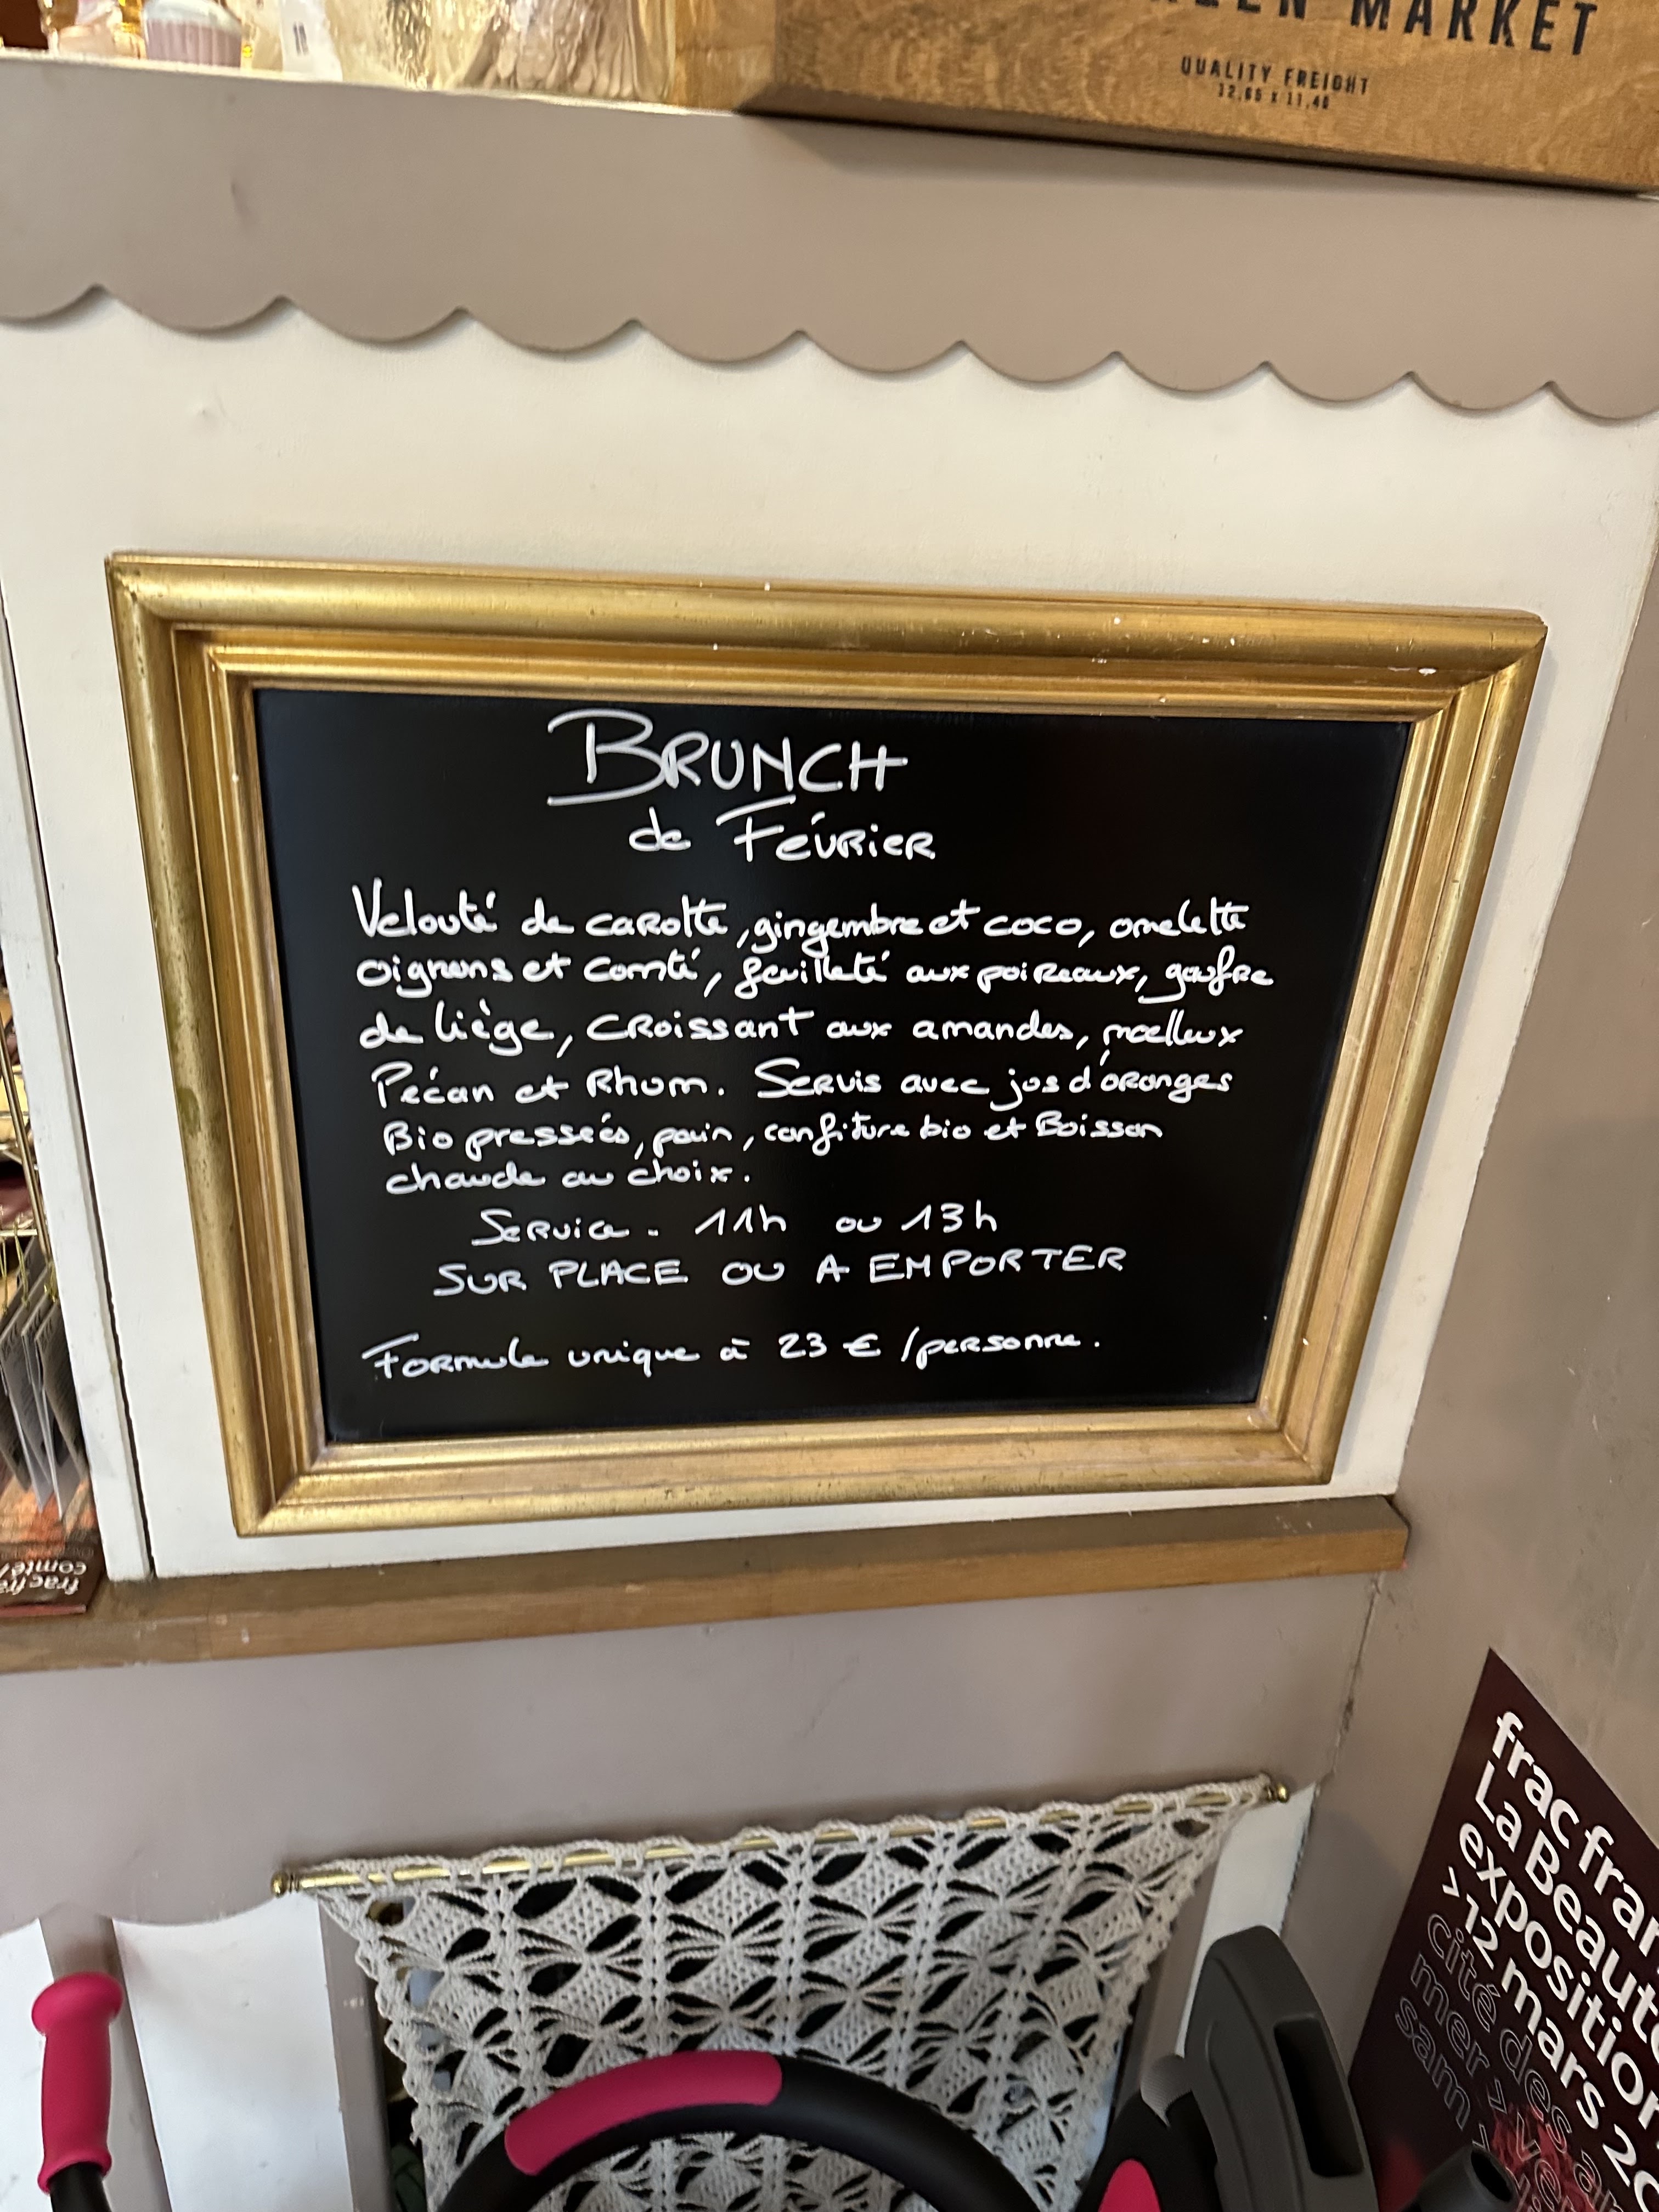 MARKET
QUALITY FREIGHT
12,65 x 11,40
BRUNCH
de FévRieR
Velouté de caRotte, gingembre et coco, omelette
oignons et comté, feuilleté aux poiReaux, gaufre
de liège, CRoissant aux amandes, moelleux
Pécan et Rhum. SeRvis avec jus d'oranges
Bio pressées, pain, confiture bio et Boisson
chaude au choix.
SeRvice. 11h ou 13h
SUR PLACE OU A EMPORTER
FoRmule unique à 23 € /personne.
frac fran
La Beauté
exposition
> 12 mars 20
Cité des a
mer > ve
sam